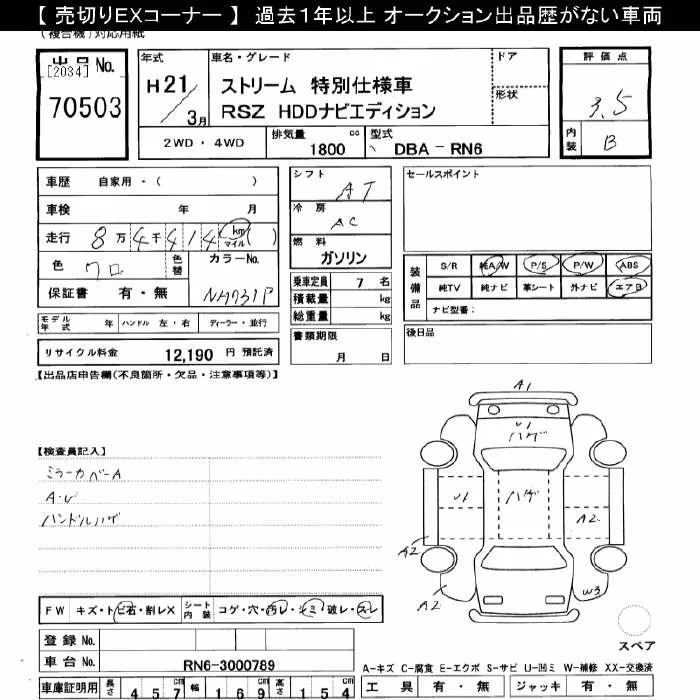 【 売切りEXコーナー 】 過去１年以上 オークション出品歴がない車両
(複合機)対応用紙
出品No.
[2034]
70503
年式
H21/3月
車名・グレード
ストリーム 特別仕様車
RSZ HDDナビエディション
ドア
形状
評価点
3.5
内装
B
2WD・4WD
排気量
1800 cc
型式
DBA－RN6
車歴 自家用・( )
車検 年 月
走行 8万4千414 km マイル ( )
色 クロ
色替
カラーNo.
NH731P
保証書 有・無
シフト
AT
冷房
AC
燃料
ガソリン
乗車定員 7 名
積載量 kg
総重量 kg
書類期限
月 日
セールスポイント
装備品
S/R 純A/W P/S P/W ABS
純TV 純ナビ 革シート 外ナビ エアB
ナビ型番：
後日品
モデル年式 年 ハンドル 左・右 ディーラー・並行
リサイクル料金 12,190 円 預託済
【出品店申告欄(不良箇所・欠品・注意事項等)】
【検査員記入】
ミラーカバーA
A・U
ハンドルハゲ
A1
U1
ハゲ
U1
ハゲ
A2
A2
A2
W3
スペア
FW キズ・トビ石・割レX
シート内装 コゲ・穴・汚レ・シミ・破レ・スレ
登録No.
車台No. RN6-3000789
A-キズ C-腐食 E-エクボ S-サビ U-凹ミ W-補修 XX-交換済
車庫証明用 長さ 457cm 幅 169cm 高さ 154cm
工具 有・無 ジャッキ 有・無